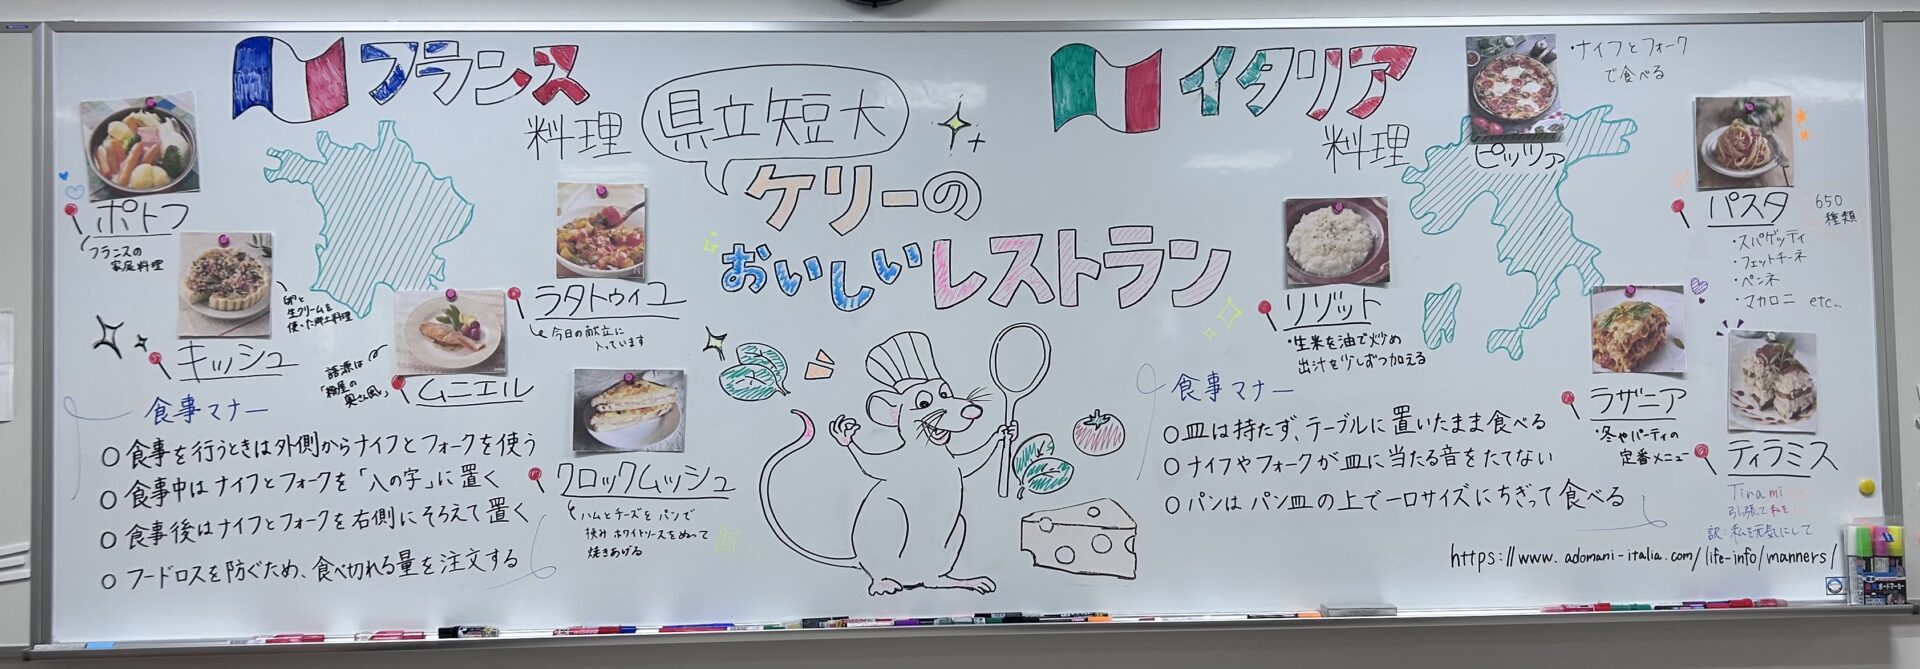 フランス
料理
県立短大
ケリーの
おいしいレストラン
イタリア
料理
ポトフ
フランスの
家庭料理
キッシュ
卵と
生クリームを
使った郷土料理
ムニエル
語源は
「粉屋の
奥さん風」
ラタトゥイユ
今日の献立に
入っています
クロックムッシュ
ハムとチーズをパンで
挟みホワイトソースをぬって
焼きあげる
食事マナー
○食事を行うときは外側からナイフとフォークを使う
○食事中はナイフとフォークを「八の字」に置く
○食事後はナイフとフォークを右側にそろえて置く
○フードロスを防ぐため、食べ切れる量を注文する
ピッツァ
・ナイフとフォーク
で食べる
パスタ
650
種類
・スパゲッティ
・フェットチーネ
・ペンネ
・マカロニ etc...
リゾット
・生米を油で炒め
出汁を少しずつ加える
ラザニア
・冬やパーティの
定番メニュー
ティラミス
Tira mi
引っ張って 私を
訳:私を元気にして
食事マナー
○皿は持たず、テーブルに置いたまま食べる
○ナイフやフォークが皿に当たる音をたてない
○パンはパン皿の上で一口サイズにちぎって食べる
https://www.adomani-italia.com/life-info/manners/